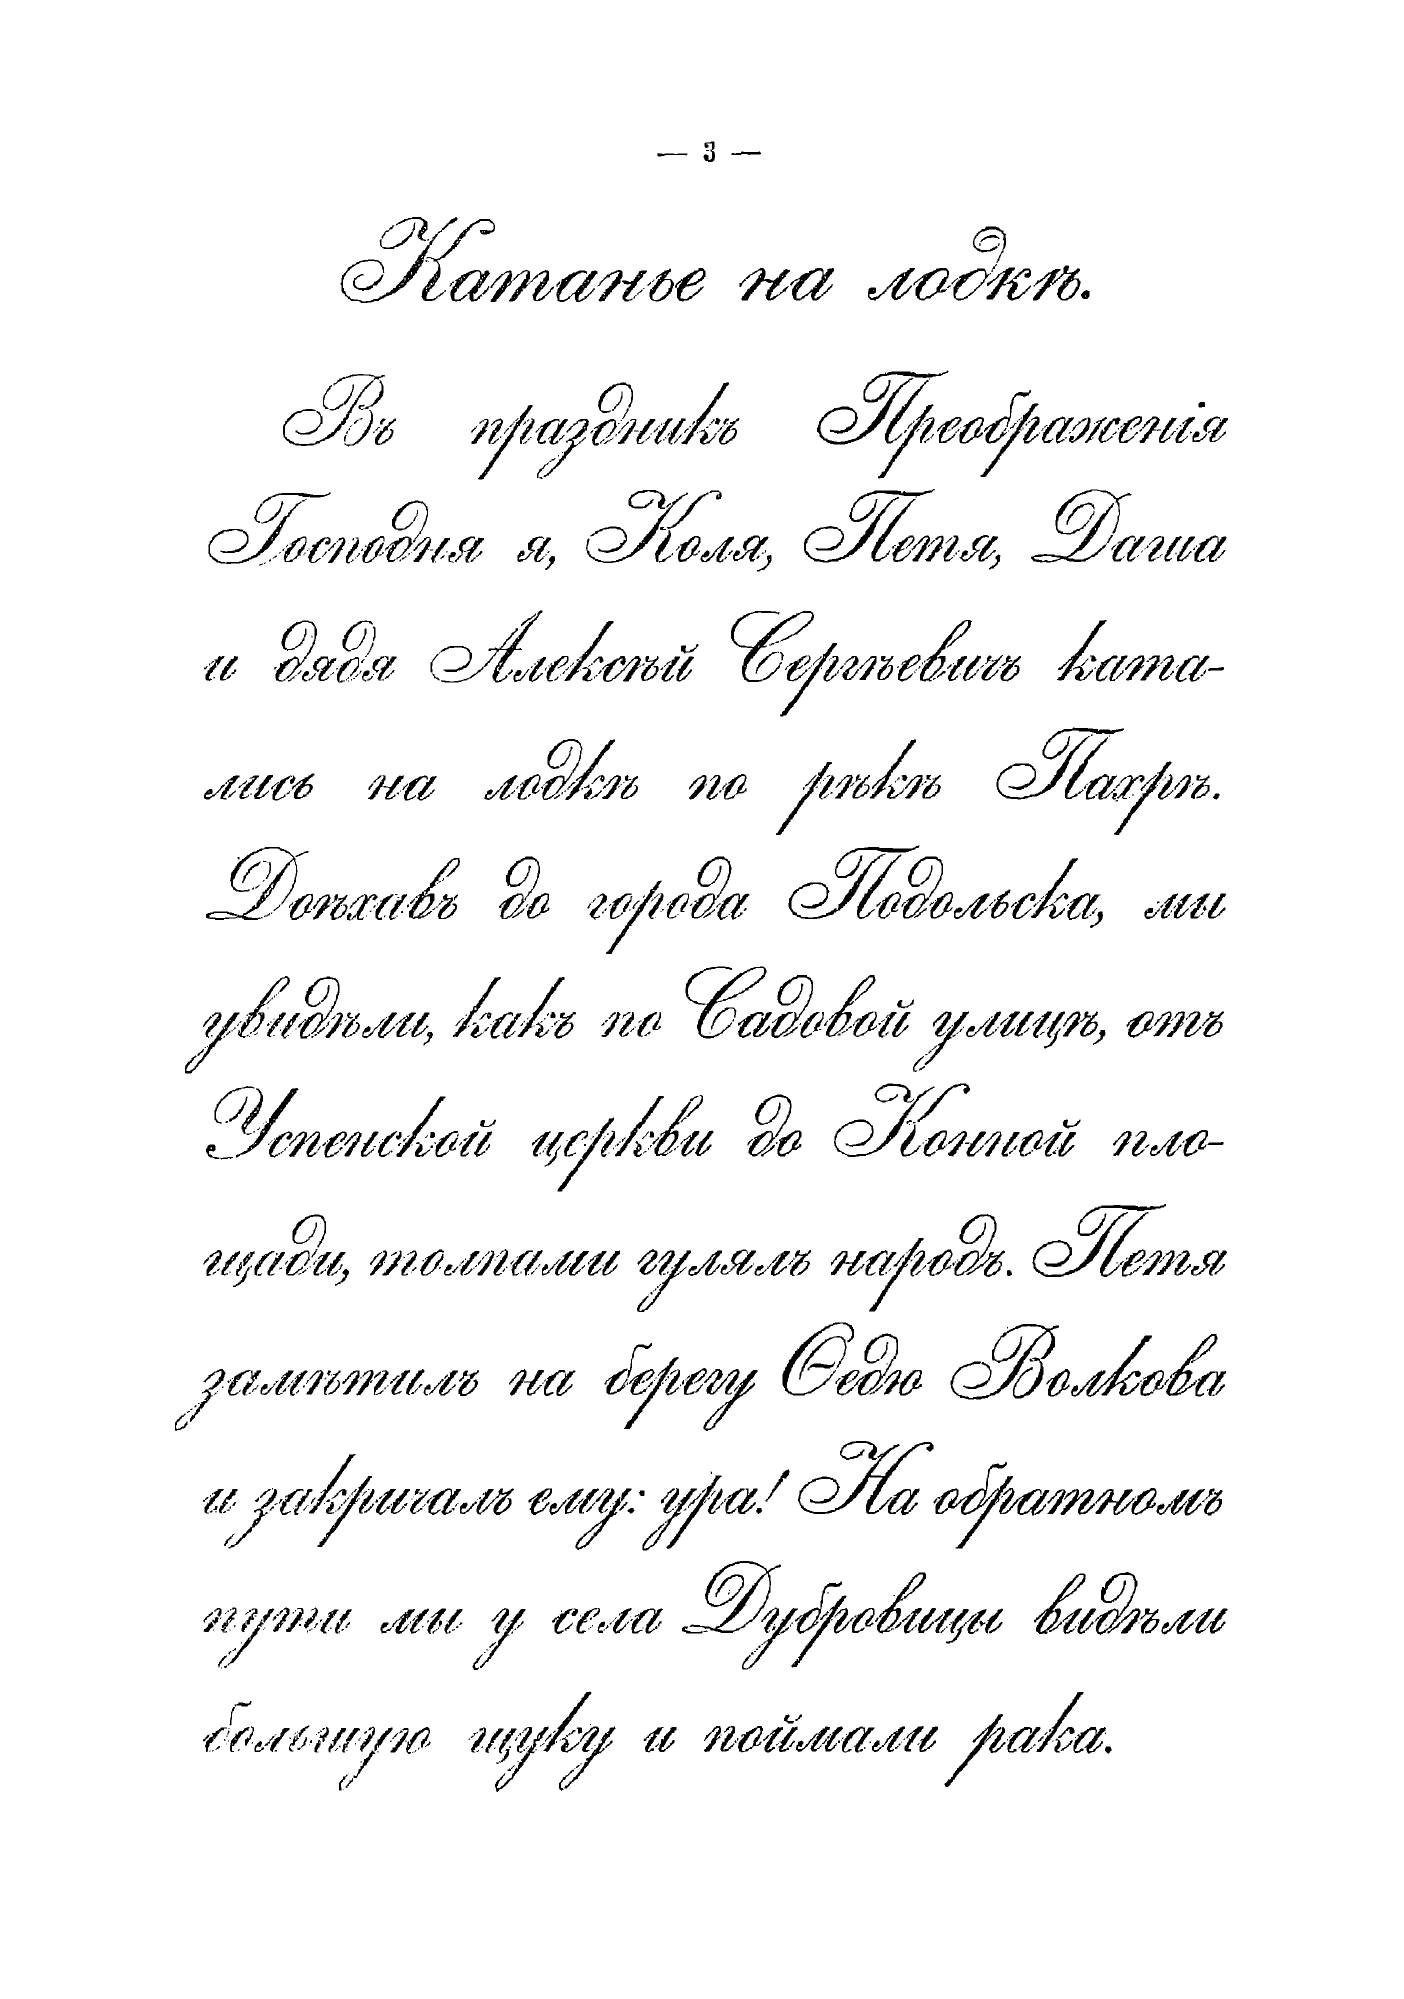 — 3 —
Катанье на лодкѣ.
Въ праздникъ Преображенія
Господня я, Коля, Петя, Даша
и дядя Алексѣй Сергѣевичъ ката-
лись на лодкѣ по рѣкѣ Пахрѣ.
Доѣхавъ до города Подольска, мы
увидѣли, какъ по Садовой улицѣ, отъ
Успенской церкви до Конной пло-
щади, толпами гулялъ народъ. Петя
замѣтилъ на берегу Ѳедю Волкова
и закричалъ ему: ура! На обратномъ
пути мы у села Дубровицы видѣли
большую щуку и поймали рака.